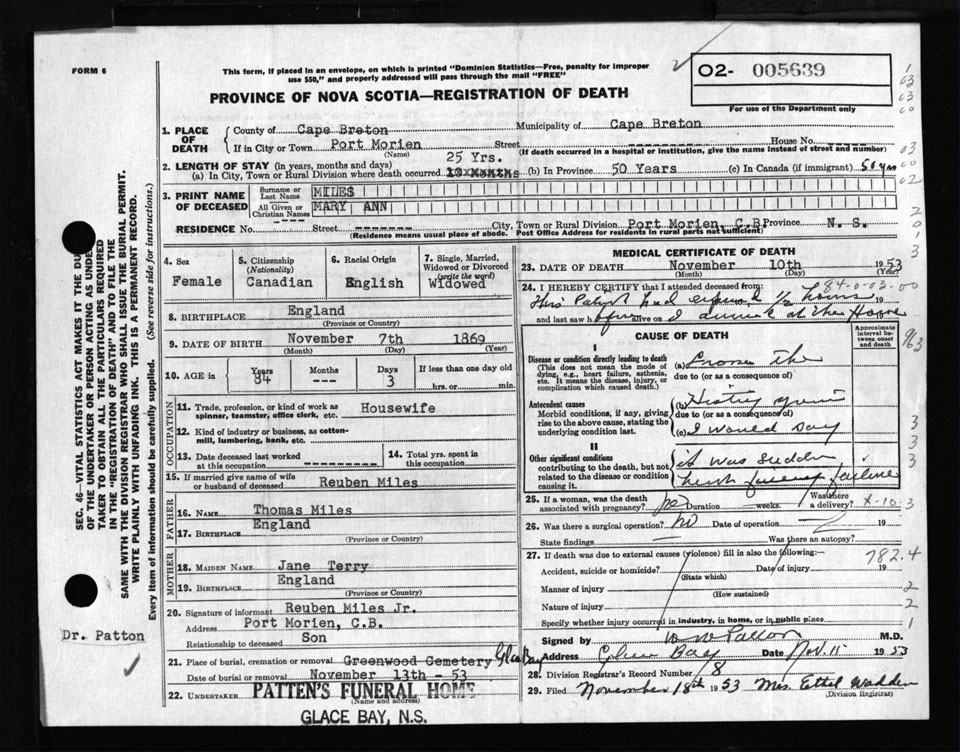 FORM 6
This form, if placed in an envelope, on which is printed "Dominion Statistics—Free, penalty for improper
use $50," and properly addressed will pass through the mail "FREE"
02- 005639
For use of the Department only
PROVINCE OF NOVA SCOTIA—REGISTRATION OF DEATH
1. PLACE OF DEATH
County of Cape Breton Municipality of Cape Breton
If in City or Town Port Morien Street House No.
(Name) (If death occurred in a hospital or institution, give the name instead of street and number)
2. LENGTH OF STAY (in years, months and days) 25 Yrs.
(a) In City, Town or Rural Division where death occurred (b) In Province 50 Years (c) In Canada (if immigrant) 50 yrs
3. PRINT NAME OF DECEASED
Surname or Last Name MILES
All Given or Christian Names MARY ANN
RESIDENCE No. Street ------- City, Town or Rural Division Port Morien, C.B. Province N. S.
(Residence means usual place of abode. Post Office Address for residents in rural parts not sufficient)
4. Sex Female
5. Citizenship (Nationality) Canadian
6. Racial Origin English
7. Single, Married, Widowed or Divorced (write the word) Widowed
8. BIRTHPLACE England
(Province or Country)
9. DATE OF BIRTH November 7th 1869
(Month) (Day) (Year)
10. AGE Years 84 Months --- Days 3 If less than one day old hrs. or min.
OCCUPATION
11. Trade, profession, or kind of work as spinner, teamster, office clerk, etc. Housewife
12. Kind of industry or business, as cotton-mill, lumbering, bank, etc.
13. Date deceased last worked at this occupation ---------
14. Total yrs. spent in this occupation
15. If married give name of wife or husband of deceased Reuben Miles
FATHER
16. NAME Thomas Miles
17. BIRTHPLACE England
(Province or Country)
MOTHER
18. MAIDEN NAME Jane Terry
19. BIRTHPLACE England
(Province or Country)
20. Signature of informant Reuben Miles Jr.
Address Port Morien, C.B.
Relationship to deceased Son
21. Place of burial, cremation or removal Greenwood Cemetery Glace Bay
Date of burial or removal November 13th - 53
22. UNDERTAKER PATTEN'S FUNERAL HOME
(Name and address)
GLACE BAY, N.S.
MEDICAL CERTIFICATE OF DEATH
23. DATE OF DEATH November 10th 1953
(Month) (Day) (Year)
24. I HEREBY CERTIFY that I attended deceased from: 84-0-03-00
This Patient had expired ½ hours 19
and last saw h alive on I arrived at the House
CAUSE OF DEATH
Approximate interval between onset and death
I
Disease or condition directly leading to death
(This does not mean the mode of dying, e.g., heart failure, asthenia, etc. It means the disease, injury, or complication which caused death.)
(a) From the
due to (or as a consequence of)
Antecedent causes
Morbid conditions, if any, giving rise to the above cause, stating the underlying condition last.
(b) History given
due to (or as a consequence of)
(c) I would say
II
Other significant conditions
contributing to the death, but not related to the disease or condition causing it.
it was sudden
heart failure
25. If a woman, was the death associated with pregnancy? no Duration weeks. Was there a delivery? X-10-3
26. Was there a surgical operation? no Date of operation 19
State findings — Was there an autopsy?
27. If death was due to external causes (violence) fill in also the following:— 782.4
Accident, suicide or homicide? Date of injury 19
(State which)
Manner of injury
(How sustained)
Nature of injury
Specify whether injury occurred in industry, in home, or in public place
Signed by W W Patton M.D.
Address Glace Bay Date Nov. 11 1953
28. Division Registrar's Record Number 18
29. Filed November 18th 1953 Mrs. Ethel Wadden
(Division Registrar)
SEC. 46—VITAL STATISTICS ACT MAKES IT THE DU
OF THE UNDERTAKER OR PERSON ACTING AS UNDER
TAKER TO OBTAIN ALL THE PARTICULARS REQUIRED
IN THE "REGISTRATION OF DEATH" AND TO FILE THE
SAME WITH THE DIVISION REGISTRAR WHO SHALL ISSUE THE BURIAL PERMIT.
WRITE PLAINLY WITH UNFADING INK. THIS IS A PERMANENT RECORD.
Every item of information should be carefully supplied. (See reverse side for instructions.)
Dr. Patton